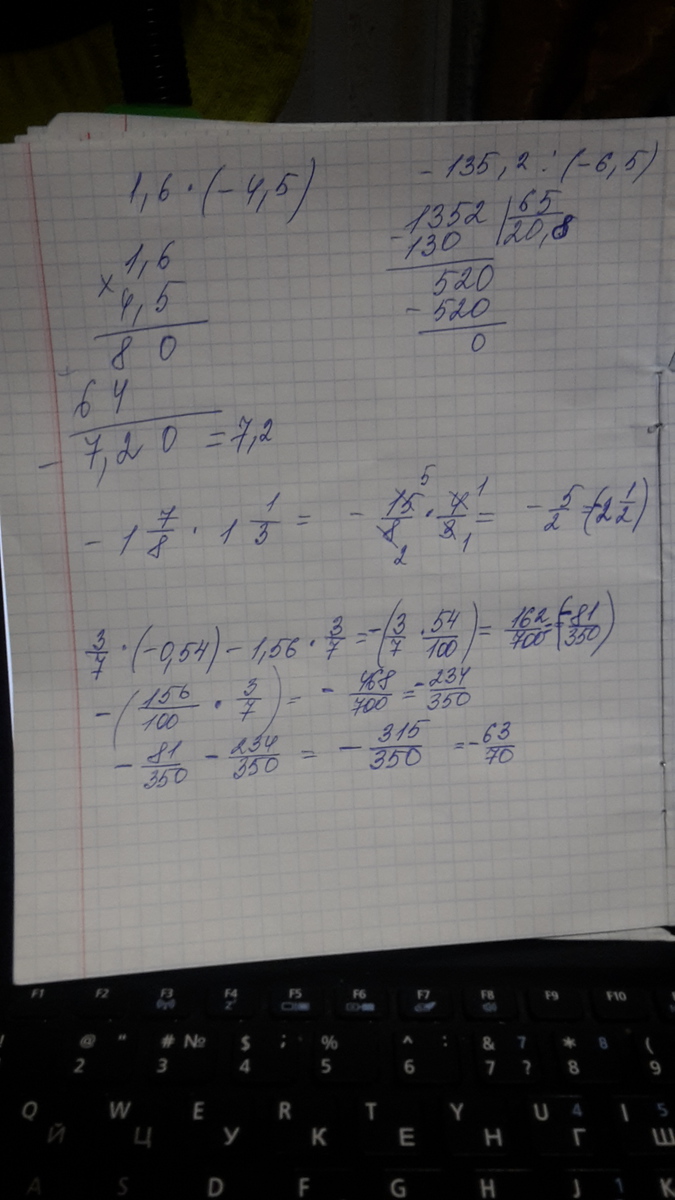 1,6 · (-4,5)
1,6
× 4,5
80
+ 64
- 7,20 = 7,2
- 135,2 : (-6,5)
- 1352 | 65
130 | 20,8
520
- 520
0
- 1 7/8 · 1 1/3 = - 15/8 · 4/3 = - 5/2 = (-2 1/2)
5 1
2 1
3/7 · (-0,54) - 1,56 · 3/7 = -(3/7 · 54/100) = 162/700 = (-81/350)
-(156/100 · 3/7) = - 468/700 = - 234/350
- 81/350 - 234/350 = - 315/350 = - 63/70
F1 F2 F3 F4 F5 F6 F7 F8 F9 F10
! @ " # № $ ; % : ^ : & 7 * 8 (
2 3 4 5 6 7 ? 8 9
Q W E R T Y U 4 I 5
Й Ц У К Е Н Г Ш
A S D F G H J 1 K